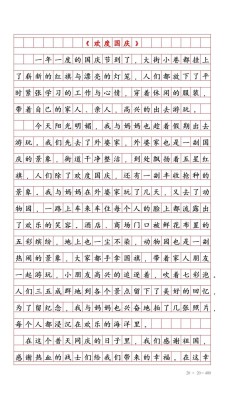 《欢度国庆》
一年一度的国庆节到了，大街小巷都挂上
了崭新的红旗与漂亮的灯笼，人们都放下了平
时紧张学习的工作与心情，穿着休闲的服装，
带着自己的家人、亲人，高兴的出去游玩。
今天阳光明媚，我与妈妈也趁着假期出去
游玩，我们先去了外婆家，外婆家也是一副国
庆的景象，街道干净整洁，到处飘扬着五星红
旗，人们除了欢度国庆，还有一副丰收抢种的
景象，我与妈妈在外婆家玩了几天，又去了动
物园，一路上车来车往每个人的脸上都流露出
了欢乐的笑容，酒店、商场门口被鲜花布置的
五彩缤纷，地上也一尘不染，动物园也是一副
热闹的景象，大家都手拿国旗，带着家人朋友
一起游玩，小朋友高兴的追逐着，吹着七彩泡，
人们三五成群地到各个景点留下了美好的回忆，
为了留纪念，我与妈妈也兴奋地拍了几张照片，
每个人都浸沉在欢乐的海洋里。
在这个普天同庆的日子里，我们感谢祖国，
感谢热血的战士们给我们带来的幸福，在这幸
20 × 20=400